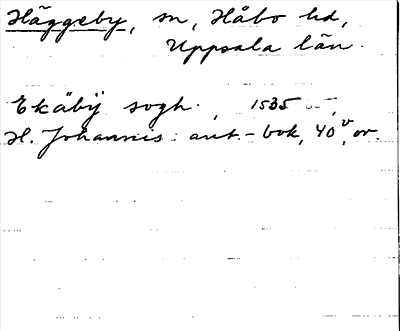 Häggeby, sn, Håbo hd,
Uppsala län.
Ekäbÿ sogh., 1535
H. Johannis ant.-bok, 40v, or.